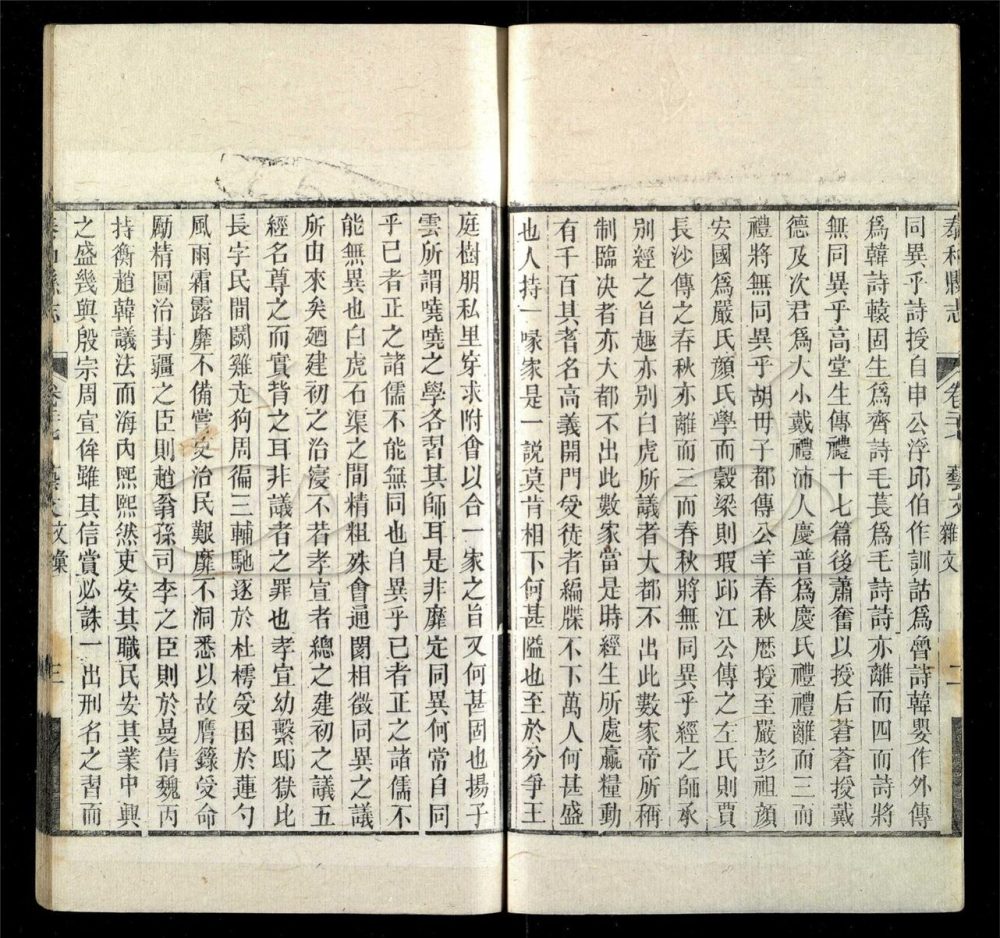 泰和縣志 卷二十七 藝文 雜文 二
同異乎詩授自申公浮邱伯作訓詁爲魯詩韓嬰作外傳
爲韓詩轅固生爲齊詩毛萇爲毛詩詩亦離而四而詩將
無同異乎高堂生傳禮十七篇後蕭奮以授后蒼蒼授戴
德及次君爲大小戴禮沛人慶普爲慶氏禮禮離而三而
禮將無同異乎胡毋子都傳公羊春秋歷授至嚴彭祖顏
安國爲嚴氏顏氏學而穀梁則瑕邱江公傳之左氏則賈
長沙傳之春秋亦離而三而春秋將無同異乎經之師承
別經之旨趣亦別白虎所議者大都不出此數家帝所稱
制臨决者亦大都不出此數家當是時經生所處贏糧動
有千百其耆名高義開門受徒者編牒不下萬人何甚盛
也人持一喙家是一說莫肯相下何甚隘也至於分爭王
庭樹朋私里穿求附會以合一家之旨又何甚固也揚子
雲所謂嘵嘵之學各習其師耳是非靡定同異何常自同
乎已者正之諸儒不能無同也自異乎已者正之諸儒不
能無異也白虎石渠之間精粗殊會通闓相徵同異之議
所由來矣廼建初之治寖不若孝宣者總之建初之議五
經名尊之而實背之耳非議者之罪也孝宣幼繫邸獄比
長字民間鬬雞走狗周徧三輔馳逐於杜樗受困於蓮勺
風雨霜露靡不備嘗安治民艱靡不洞悉以故膺籙受命
勵精圖治封疆之臣則趙翁孫司李之臣則於曼倩魏丙
持衡趙韓議法而海內熙熙然吏安其職民安其業中興
之盛幾與殷宗周宣侔雖其信賞必誅一出刑名之習而
泰和縣志 卷二十七 藝文 文彙 三